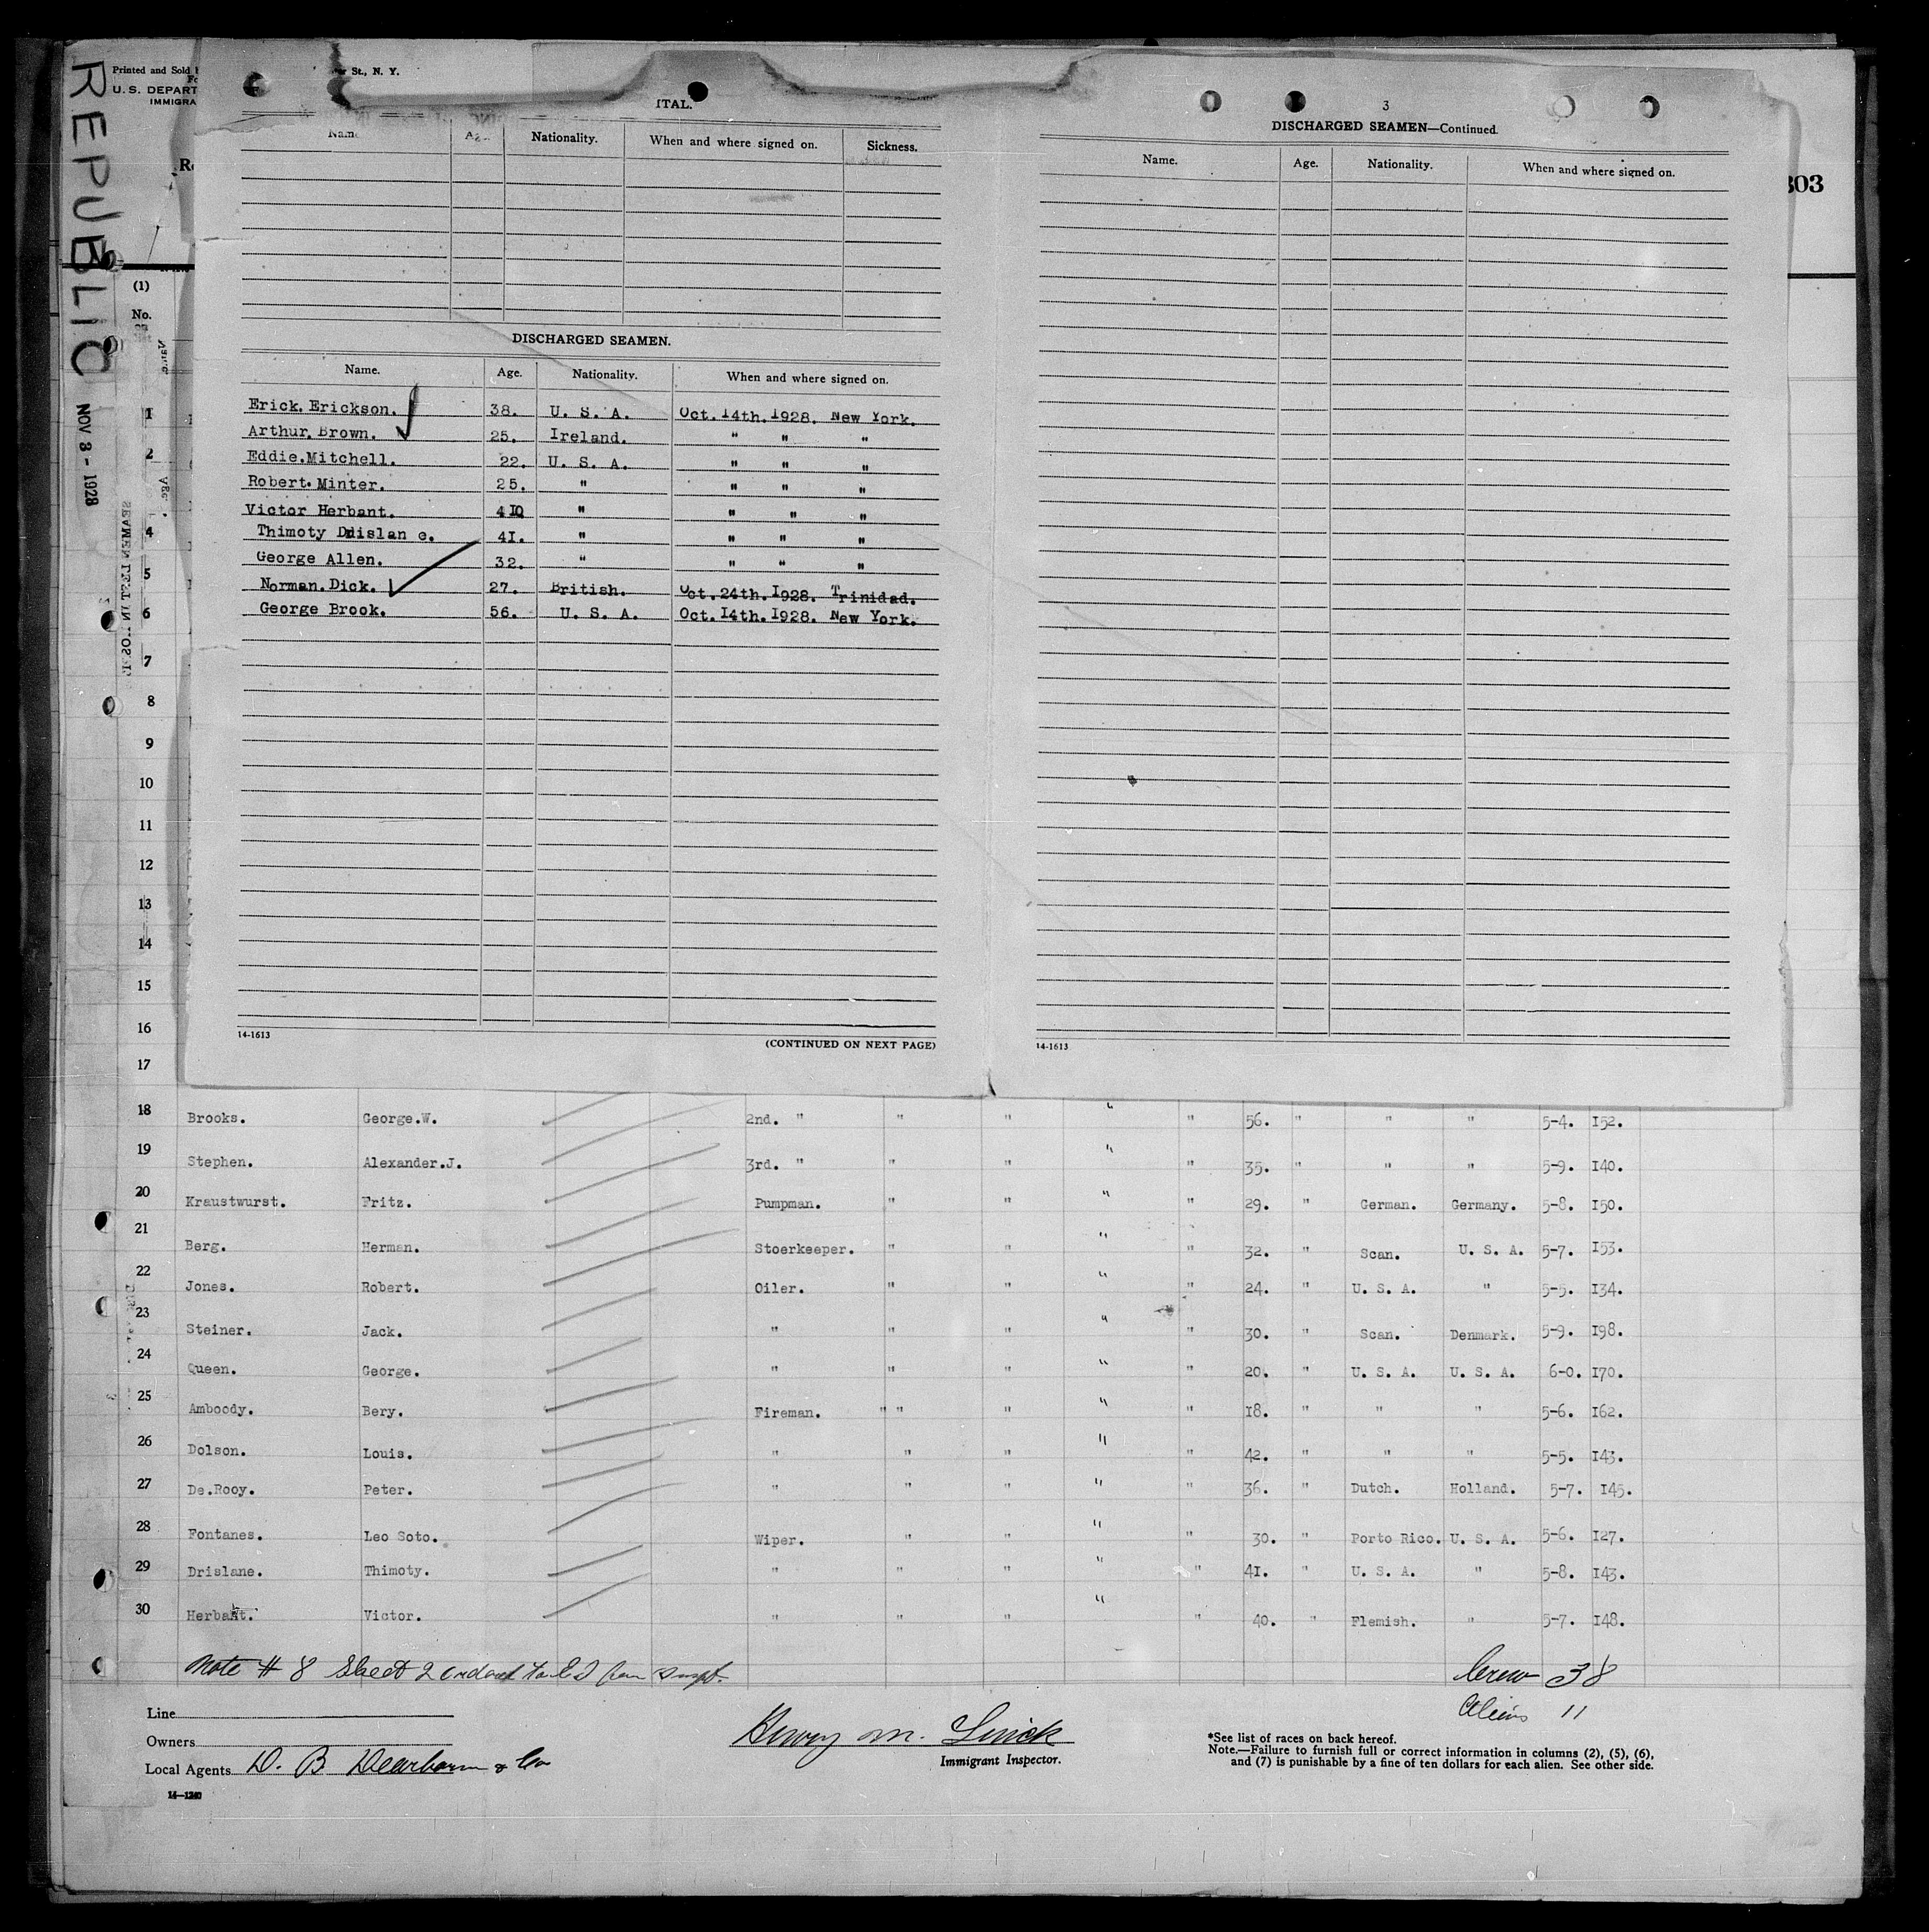 REPUBLIC
NOV 8 - 1928
Printed and Sold
U. S. DEPART
IMMIGRA
St., N. Y.
303
(1)
No.
ITAL.
Name. Age. Nationality. When and where signed on. Sickness.
DISCHARGED SEAMEN.
Name. Age. Nationality. When and where signed on.
Erick. Erickson. 38. U. S. A. Oct. 14th. 1928. New York.
Arthur. Brown. 25. Ireland. " " "
Eddie. Mitchell. 22. U. S. A. " " "
Robert. Minter. 25. " " " "
Victor Herbant. 40 " " " "
Thimoty Drislan e. 41. " " " "
George Allen. 32. " " " "
Norman. Dick. 27. British. Oct. 24th. 1928. Trinidad.
George Brook. 56. U. S. A. Oct. 14th. 1928. New York.
14-1613
(CONTINUED ON NEXT PAGE)
3
DISCHARGED SEAMEN—Continued.
Name. Age. Nationality. When and where signed on.
14-1613
1
2
4
5
6
7
8
9
10
11
12
13
14
15
16
17
18 Brooks. George.W. 2nd. " " " " " 56. " " " 5-4. 152.
19 Stephen. Alexander.J. 3rd. " " " " " 35. " " " 5-9. 140.
20 Kraustwurst. Fritz. Pumpman. " " " " 29. " German. Germany. 5-8. 150.
21 Berg. Herman. Stoerkeeper. " " " " 32. " Scan. U. S. A. 5-7. 153.
22 Jones. Robert. Oiler. " " " " 24. " U. S. A. " 5-5. 134.
23 Steiner. Jack. " " " " " 30. " Scan. Denmark. 5-9. 198.
24 Queen. George. " " " " " 20. " U. S. A. U. S. A. 6-0. 170.
25 Amboody. Bery. Fireman. " " " " " 18. " " " 5-6. 162.
26 Dolson. Louis. " " " " " 42. " " " 5-5. 143.
27 De.Rooy. Peter. " " " " " 36. " Dutch. Holland. 5-7. 145.
28 Fontanes. Leo Soto. Wiper. " " " " 30. " Porto Rico. U. S. A. 5-6. 127.
29 Drislane. Thimoty. " " " " " 41. " U. S. A. " 5-8. 143.
30 Herbant. Victor. " " " " " 40. " Flemish. " 5-7. 148.
Note # 8 Sheet 2
Crew 38
Aliens 11
Line
Owners
Local Agents D. B. Dearborn & Co
14—1240
Immigrant Inspector.
*See list of races on back hereof.
Note.—Failure to furnish full or correct information in columns (2), (5), (6),
and (7) is punishable by a fine of ten dollars for each alien. See other side.